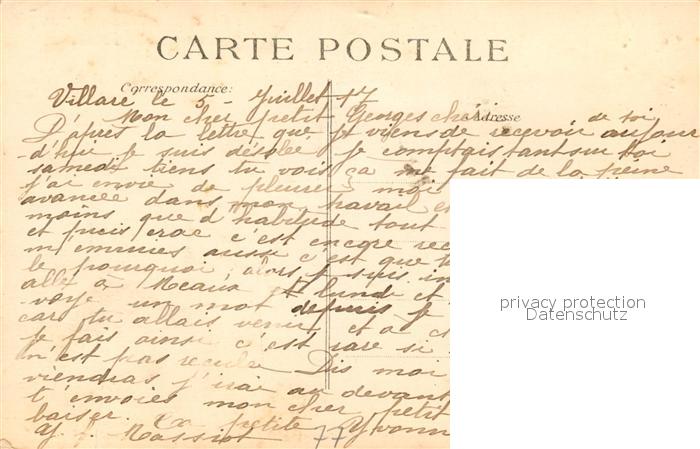 CARTE POSTALE
Correspondance:
Adresse
Villare le 5 - Juillet - 17
Mon cher petit Georges chéri de toi
D'après la lettre que je viens de recevoir aujour
d'hui je suis désolée je comptais tant sur toi
samedi tiens tu vois ça me fait de la peine
j'ai envie de pleurer moi
avancée dans mon travail es
moins que d'habitude tout
et puis crac c'est encore rec
m'ennuies aussi c'est que t
le pourquoi, alors je suis in
allé à Meaux lundi et
voye un mot depuis je
car tu allais venir et à c
je fais ainsi c'est rare si
n'est pas reculé Dis moi
viendras j'irai au devant
t'envoies mon cher petit
baiser. Ta petite Yvonn
Y. Massiot 77
privacy protection
Datenschutz